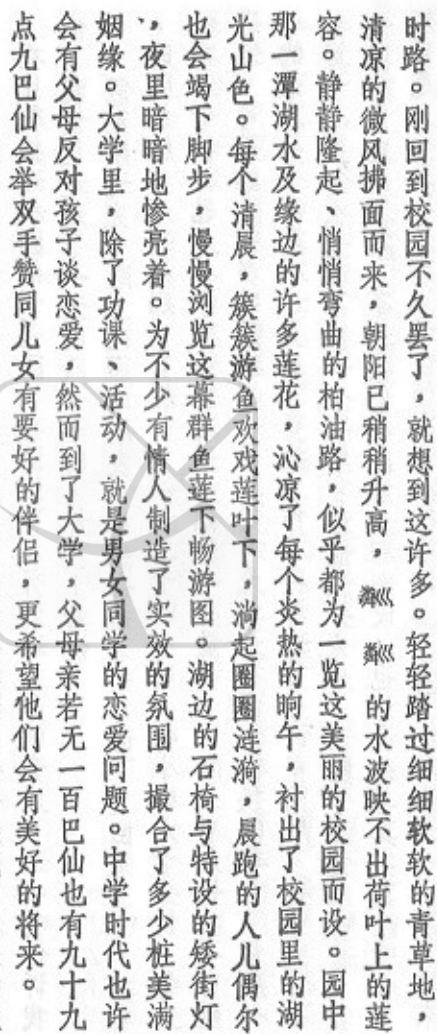 时路。刚回到校园不久罢了，就想到这许多。轻轻踏过细细软软的青草地，
清凉的微风拂面而来，朝阳已稍稍升高，粼粼的水波映不出荷叶上的莲
容。静静隆起、悄悄弯曲的柏油路，似乎都为一览这美丽的校园而设。园中
那一潭湖水及缘边的许多莲花，沁凉了每个炎热的晌午，衬出了校园里的湖
光山色。每个清晨，簇簇游鱼欢戏莲叶下，淌起圈圈涟漪，晨跑的人儿偶尔
也会竭下脚步，慢慢浏览这幕群鱼莲下畅游图。湖边的石椅与特设的矮街灯
，夜里暗暗地惨亮着。为不少有情人制造了实效的氛围，撮合了多少桩美满
姻缘。大学里，除了功课、活动，就是男女同学的恋爱问题。中学时代也许
会有父母反对孩子谈恋爱，然而到了大学，父母亲若无一百巴仙也有九十九
点九巴仙会举双手赞同儿女有要好的伴侣，更希望他们会有美好的将来。